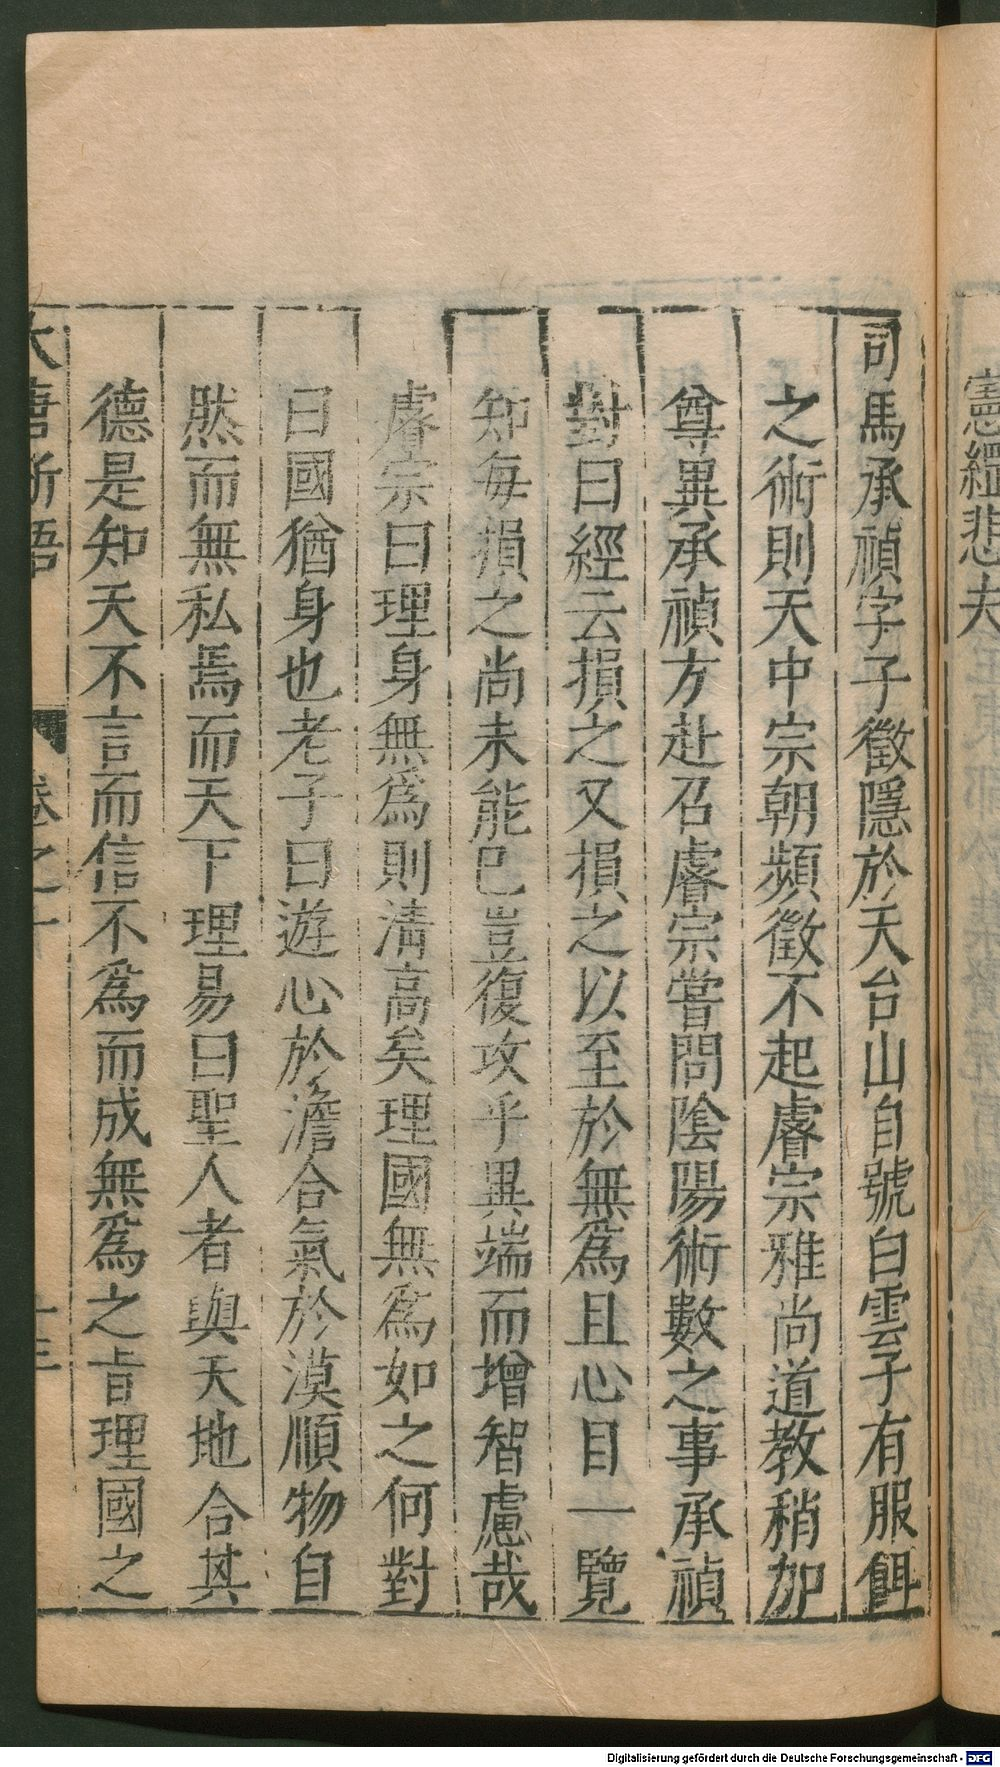 憲纓悲夫
司馬承禎字子徵隱於天台山自號白雲子有服餌
之術則天中宗朝頻徵不起睿宗雅尚道教稍加
尊異承禎方赴召睿宗嘗問陰陽術數之事承禎
對曰經云損之又損之以至於無爲且心目一覽
知每損之尚未能已豈復攻乎異端而增智慮哉
睿宗曰理身無爲則清高矣理國無爲如之何對
曰國猶身也老子曰遊心於澹合氣於漠順物自
然而無私焉而天下理易曰聖人者與天地合其
德是知天不言而信不爲而成無爲之旨理國之
大唐新語 卷之十 十三
Digitalisierung gefördert durch die Deutsche Forschungsgemeinschaft - DFG